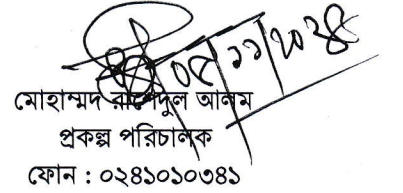 ০৫/১১/২০২৪
মোহাম্মদ রাশেদুল আলম
প্রকল্প পরিচালক
ফোন : ০২৪১০১০৩৪১